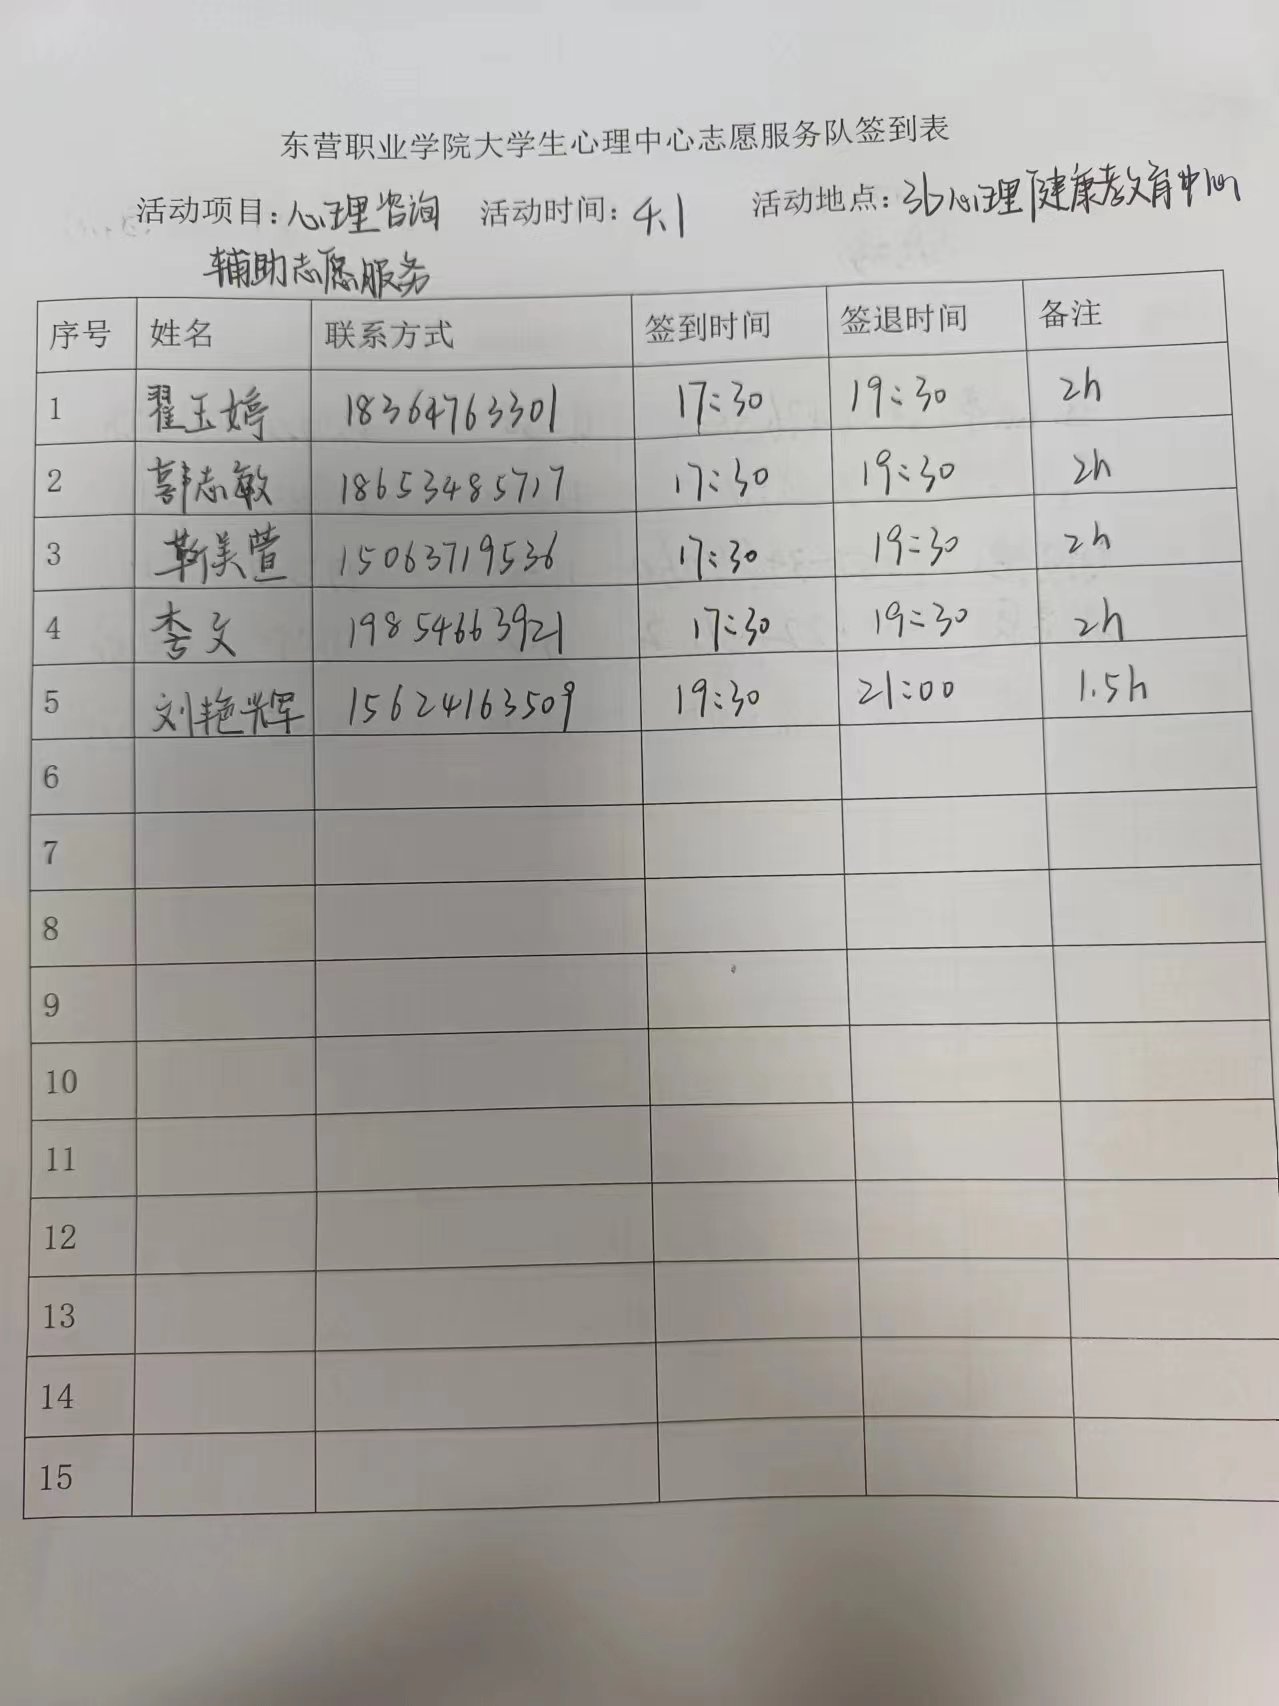 东营职业学院大学生心理中心志愿服务队签到表
活动项目:心理咨询 活动时间: 4.1 活动地点:3b心理健康教育中心
辅助志愿服务
序号 姓名 联系方式 签到时间 签退时间 备注
1 翟玉婷 18364763301 17:30 19:30 2h
2 郭志敏 18653485717 17:30 19:30 2h
3 靳美萱 15063719536 17:30 19:30 2h
4 李文 19854663921 17:30 19:30 2h
5 刘艳辉 15624163509 19:30 21:00 1.5h
6
7
8
9
10
11
12
13
14
15